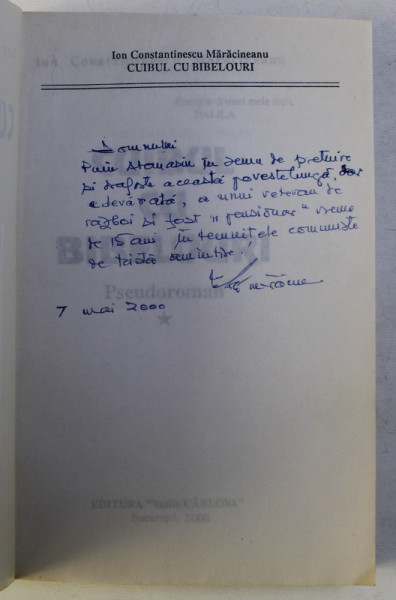 Ion Constantinescu Mărăcineanu
CUIBUL CU BIBELOURI
Domnului
Puiu Atanasiu în semn de prețuire
și dragoste această poveste lungă, dar
adevărată, a unui veteran de
război și fost "pensionar" vreme
de 15 ani în temnițele comuniste
de tristă amintire!
7 mai 2000
Pseudoroman
EDITURA "Vasile CÂRLOVA"
București, 2000